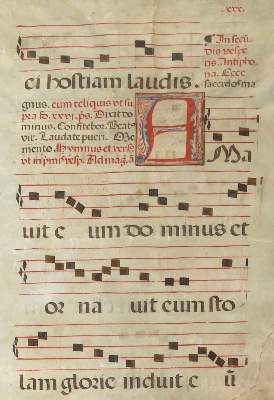 xxx.
ei hostiam laudis.
¶ In secū
dis vespe
ris Antipho
na. Ecce
sacerdos ma
gnus. cum reliquis vt su
pra fo. xxvj. ps. Dixit do
minus. Confitebor. Beat
vir. Laudate pueri. Me
mento Hymnus et verse
vt in primis vesp. Ad mag. ā
A Ma
uit e um do minus et
or na uit eum sto
lam glorie induit e ū